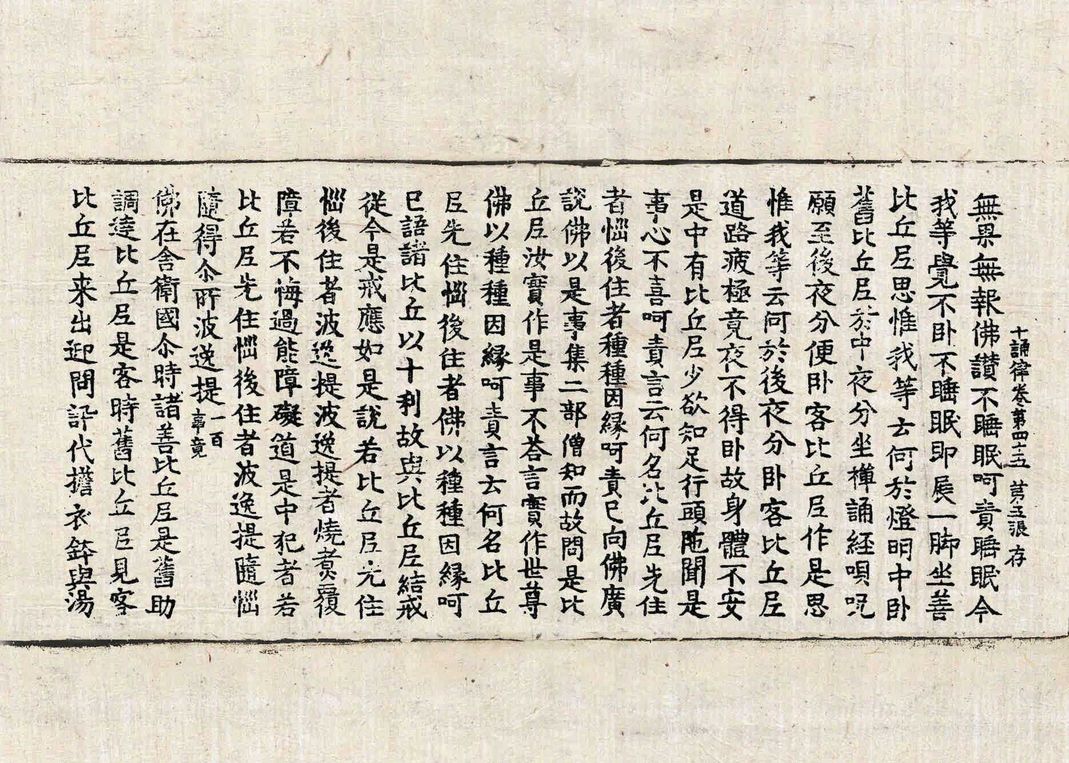 十誦律卷第四十五　第五張　存
無恩無報佛讚不睡眠呵責睡眠今
我等覺不卧不睡眠即展一脚坐善
比丘尼思惟我等云何於燈明中卧
舊比丘尼於中夜分坐禪誦經唄呪
願至後夜分便卧客比丘尼作是思
惟我等云何於後夜分卧客比丘尼
道路疲極竟夜不得卧故身體不安
是中有比丘尼少欲知足行頭陁聞是
事心不喜呵責言云何名比丘尼先住
者惱後住者種種因縁呵責已向佛廣
說佛以是事集二部僧知而故問是比
丘尼汝實作是事不答言實作世尊
佛以種種因縁呵責言云何名比丘
尼先住惱後住者佛以種種因縁呵
已語諸比丘以十利故與比丘尼結戒
從今是戒應如是說若比丘尼先住
惱後住者波逸提波逸提者燒煑覆
障若不悔過能障礙道是中犯者若
比丘尼先住惱後住者波逸提隨惱
隨得尒所波逸提一百事竟
佛在舍衛國尒時諸善比丘尼是舊助
調達比丘尼是客時舊比丘尼見客
比丘尼来出迎問訊代擔衣鉢與湯